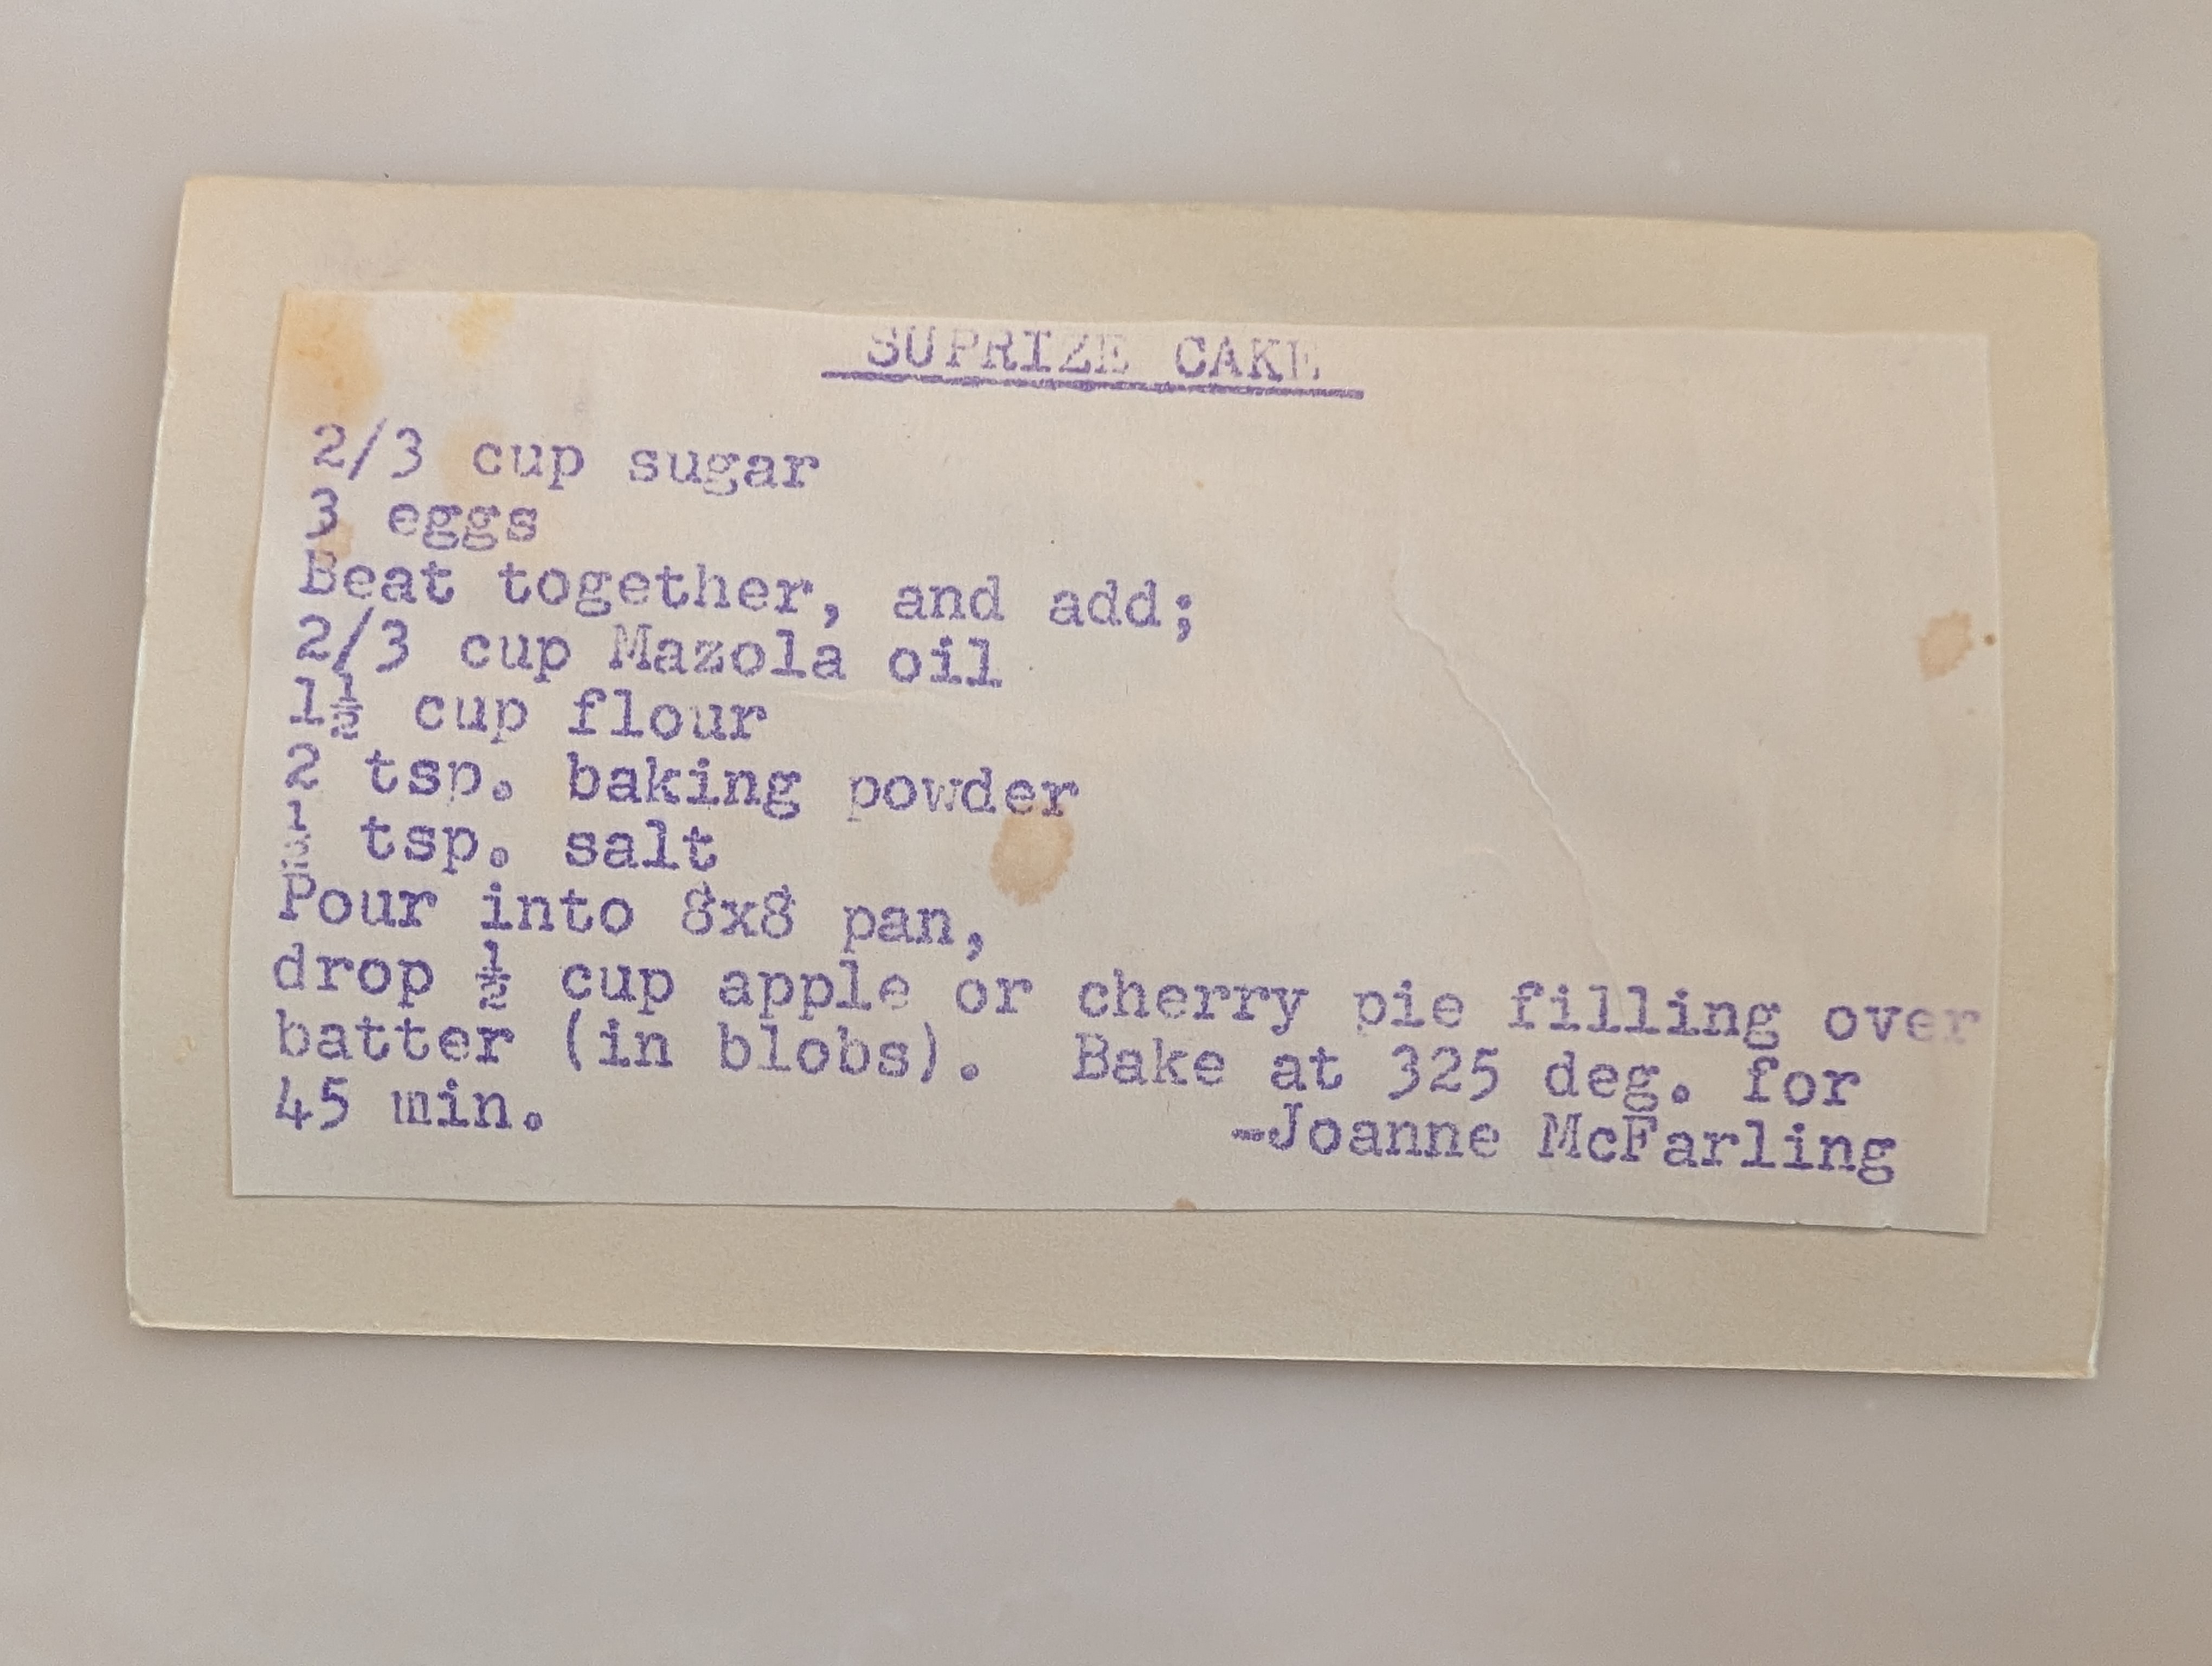 SUPRIZE CAKE
2/3 cup sugar
3 eggs
Beat together, and add;
2/3 cup Mazola oil
1½ cup flour
2 tsp. baking powder
½ tsp. salt
Pour into 8x8 pan,
drop ½ cup apple or cherry pie filling over
batter (in blobs).  Bake at 325 deg. for
45 min.
-Joanne McFarling